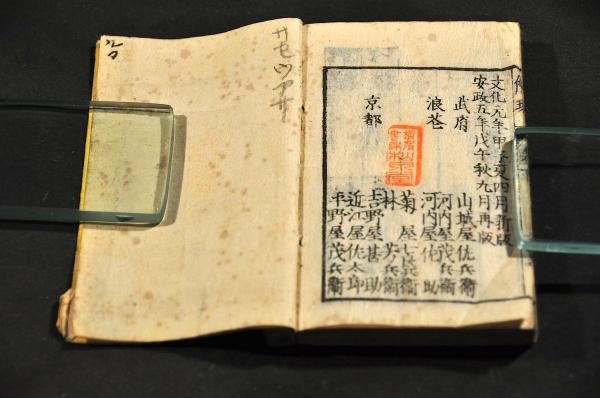 文化元年甲子夏四月新版
安政五年戊午秋九月再版
武府 山城屋佐兵衛
河内屋茂兵衛
浪花 河内屋佑助
菊屋七良兵衛
林芳兵衛
京都 吉野屋甚助
近江屋佐太郎
平野屋茂兵衛
サセツアサ